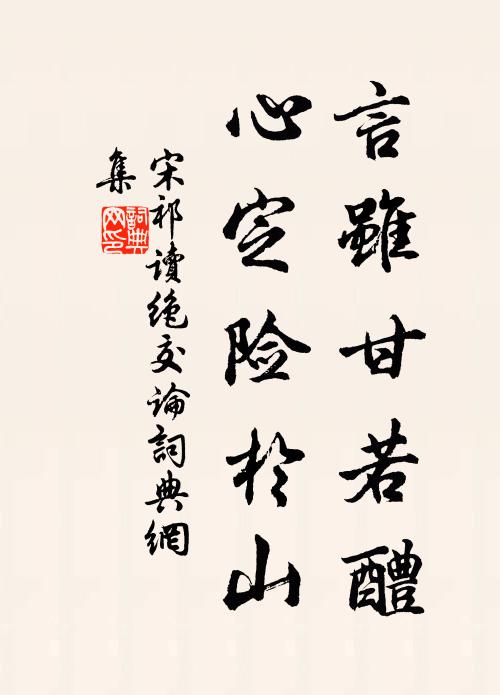 言雖甘若醴
心定險於山
宋祁讀絶交論詞典網
集
詞典
网印